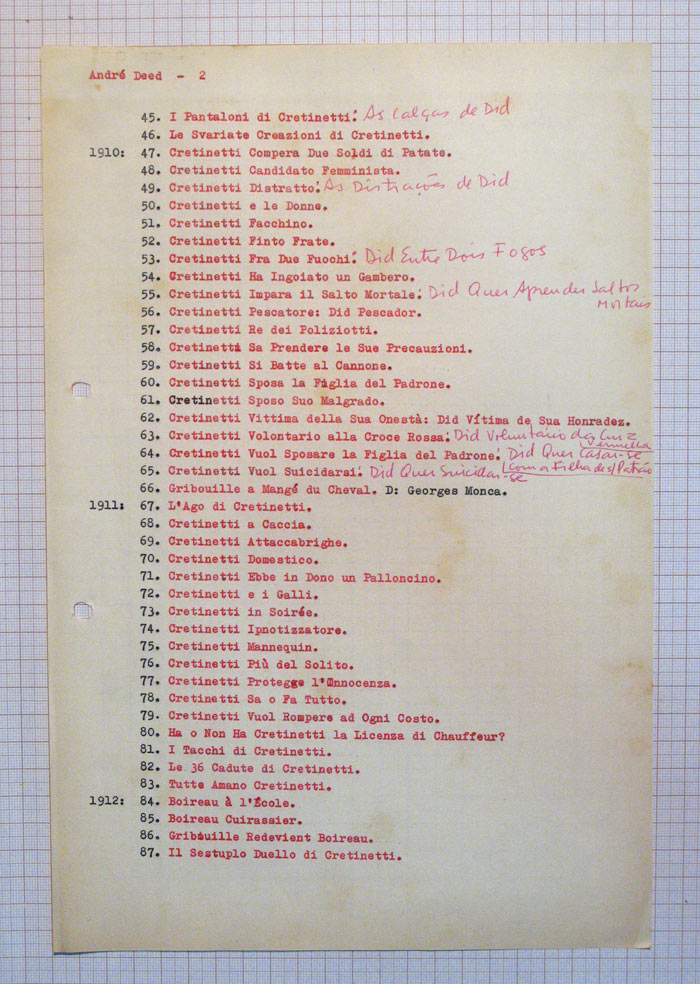 André Deed - 2
45. I Pantaloni di Cretinetti: As Calças de Did
46. Le Svariate Creazioni di Cretinetti.
1910: 47. Cretinetti Compera Due Soldi di Patate.
48. Cretinetti Candidato Femminista.
49. Cretinetti Distratto: As Distrações de Did
50. Cretinetti e le Donne.
51. Cretinetti Facchino.
52. Cretinetti Finto Frate.
53. Cretinetti Fra Due Fuochi: Did Entre Dois Fogos
54. Cretinetti Ha Ingoiato un Gambero.
55. Cretinetti Impara il Salto Mortale: Did Quer Aprender Saltos
Mortais
56. Cretinetti Pescatore: Did Pescador.
57. Cretinetti Re dei Poliziotti.
58. Cretinetti Sa Prendere le Sue Precauzioni.
59. Cretinetti Si Batte al Cannone.
60. Cretinetti Sposa la Figlia del Padrone.
61. Cretinetti Sposo Suo Malgrado.
62. Cretinetti Vittima della Sua Onestà: Did Vítima de Sua Honradez.
63. Cretinetti Volontario alla Croce Rossa: Did Voluntário da Cruz
Vermelha
64. Cretinetti Vuol Sposare la Figlia del Padrone: Did Quer Casar-se
com a Filha do s/ Patrão
65. Cretinetti Vuol Suicidarsi: Did Quer Suicidar-se
66. Gribouille a Mangé du Cheval. D: Georges Monca.
1911: 67. L'Ago di Cretinetti.
68. Cretinetti a Caccia.
69. Cretinetti Attaccabrighe.
70. Cretinetti Domestico.
71. Cretinetti Ebbe in Dono un Palloncino.
72. Cretinetti e i Galli.
73. Cretinetti in Soirée.
74. Cretinetti Ipnotizzatore.
75. Cretinetti Mannequin.
76. Cretinetti Più del Solito.
77. Cretinetti Protegge l'Innocenza.
78. Cretinetti Sa o Fa Tutto.
79. Cretinetti Vuol Rompere ad Ogni Costo.
80. Ha o Non Ha Cretinetti la Licenza di Chauffeur?
81. I Tacchi di Cretinetti.
82. Le 36 Cadute di Cretinetti.
83. Tutte Amano Cretinetti.
1912: 84. Boireau à l'École.
85. Boireau Cuirassier.
86. Gribouille Redevient Boireau.
87. Il Sestuplo Duello di Cretinetti.